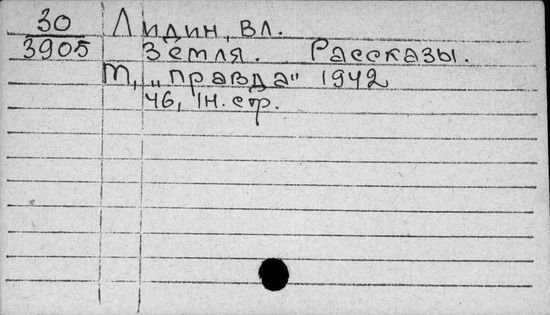 30 Лидин, Вл.
3905 Земля. Рассказы.
М, "Правда" 1942
46, 1н. стр.